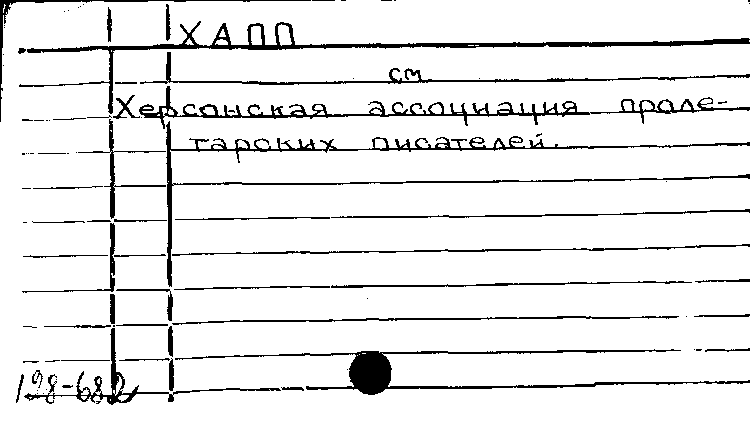 ХАПП
см
Херсонская ассоциация проле-
тарских писателей.
128-682